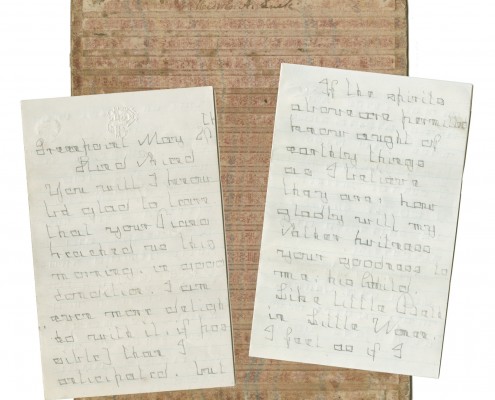 Greenpoint May
Kind Friend
You will I know
be glad to learn
that your Piano
reached us this
morning, in good
condition. I am
even more deligh
ted with it, if pos
sible] than I
anticipated. but
If the spirits
above are permitted to
know aught of
earthly things
as I believe
they are, how
gladly will my
Father witness
your goodness to
me, his child.
Like little Beth
in Little Women,
I feel as if I